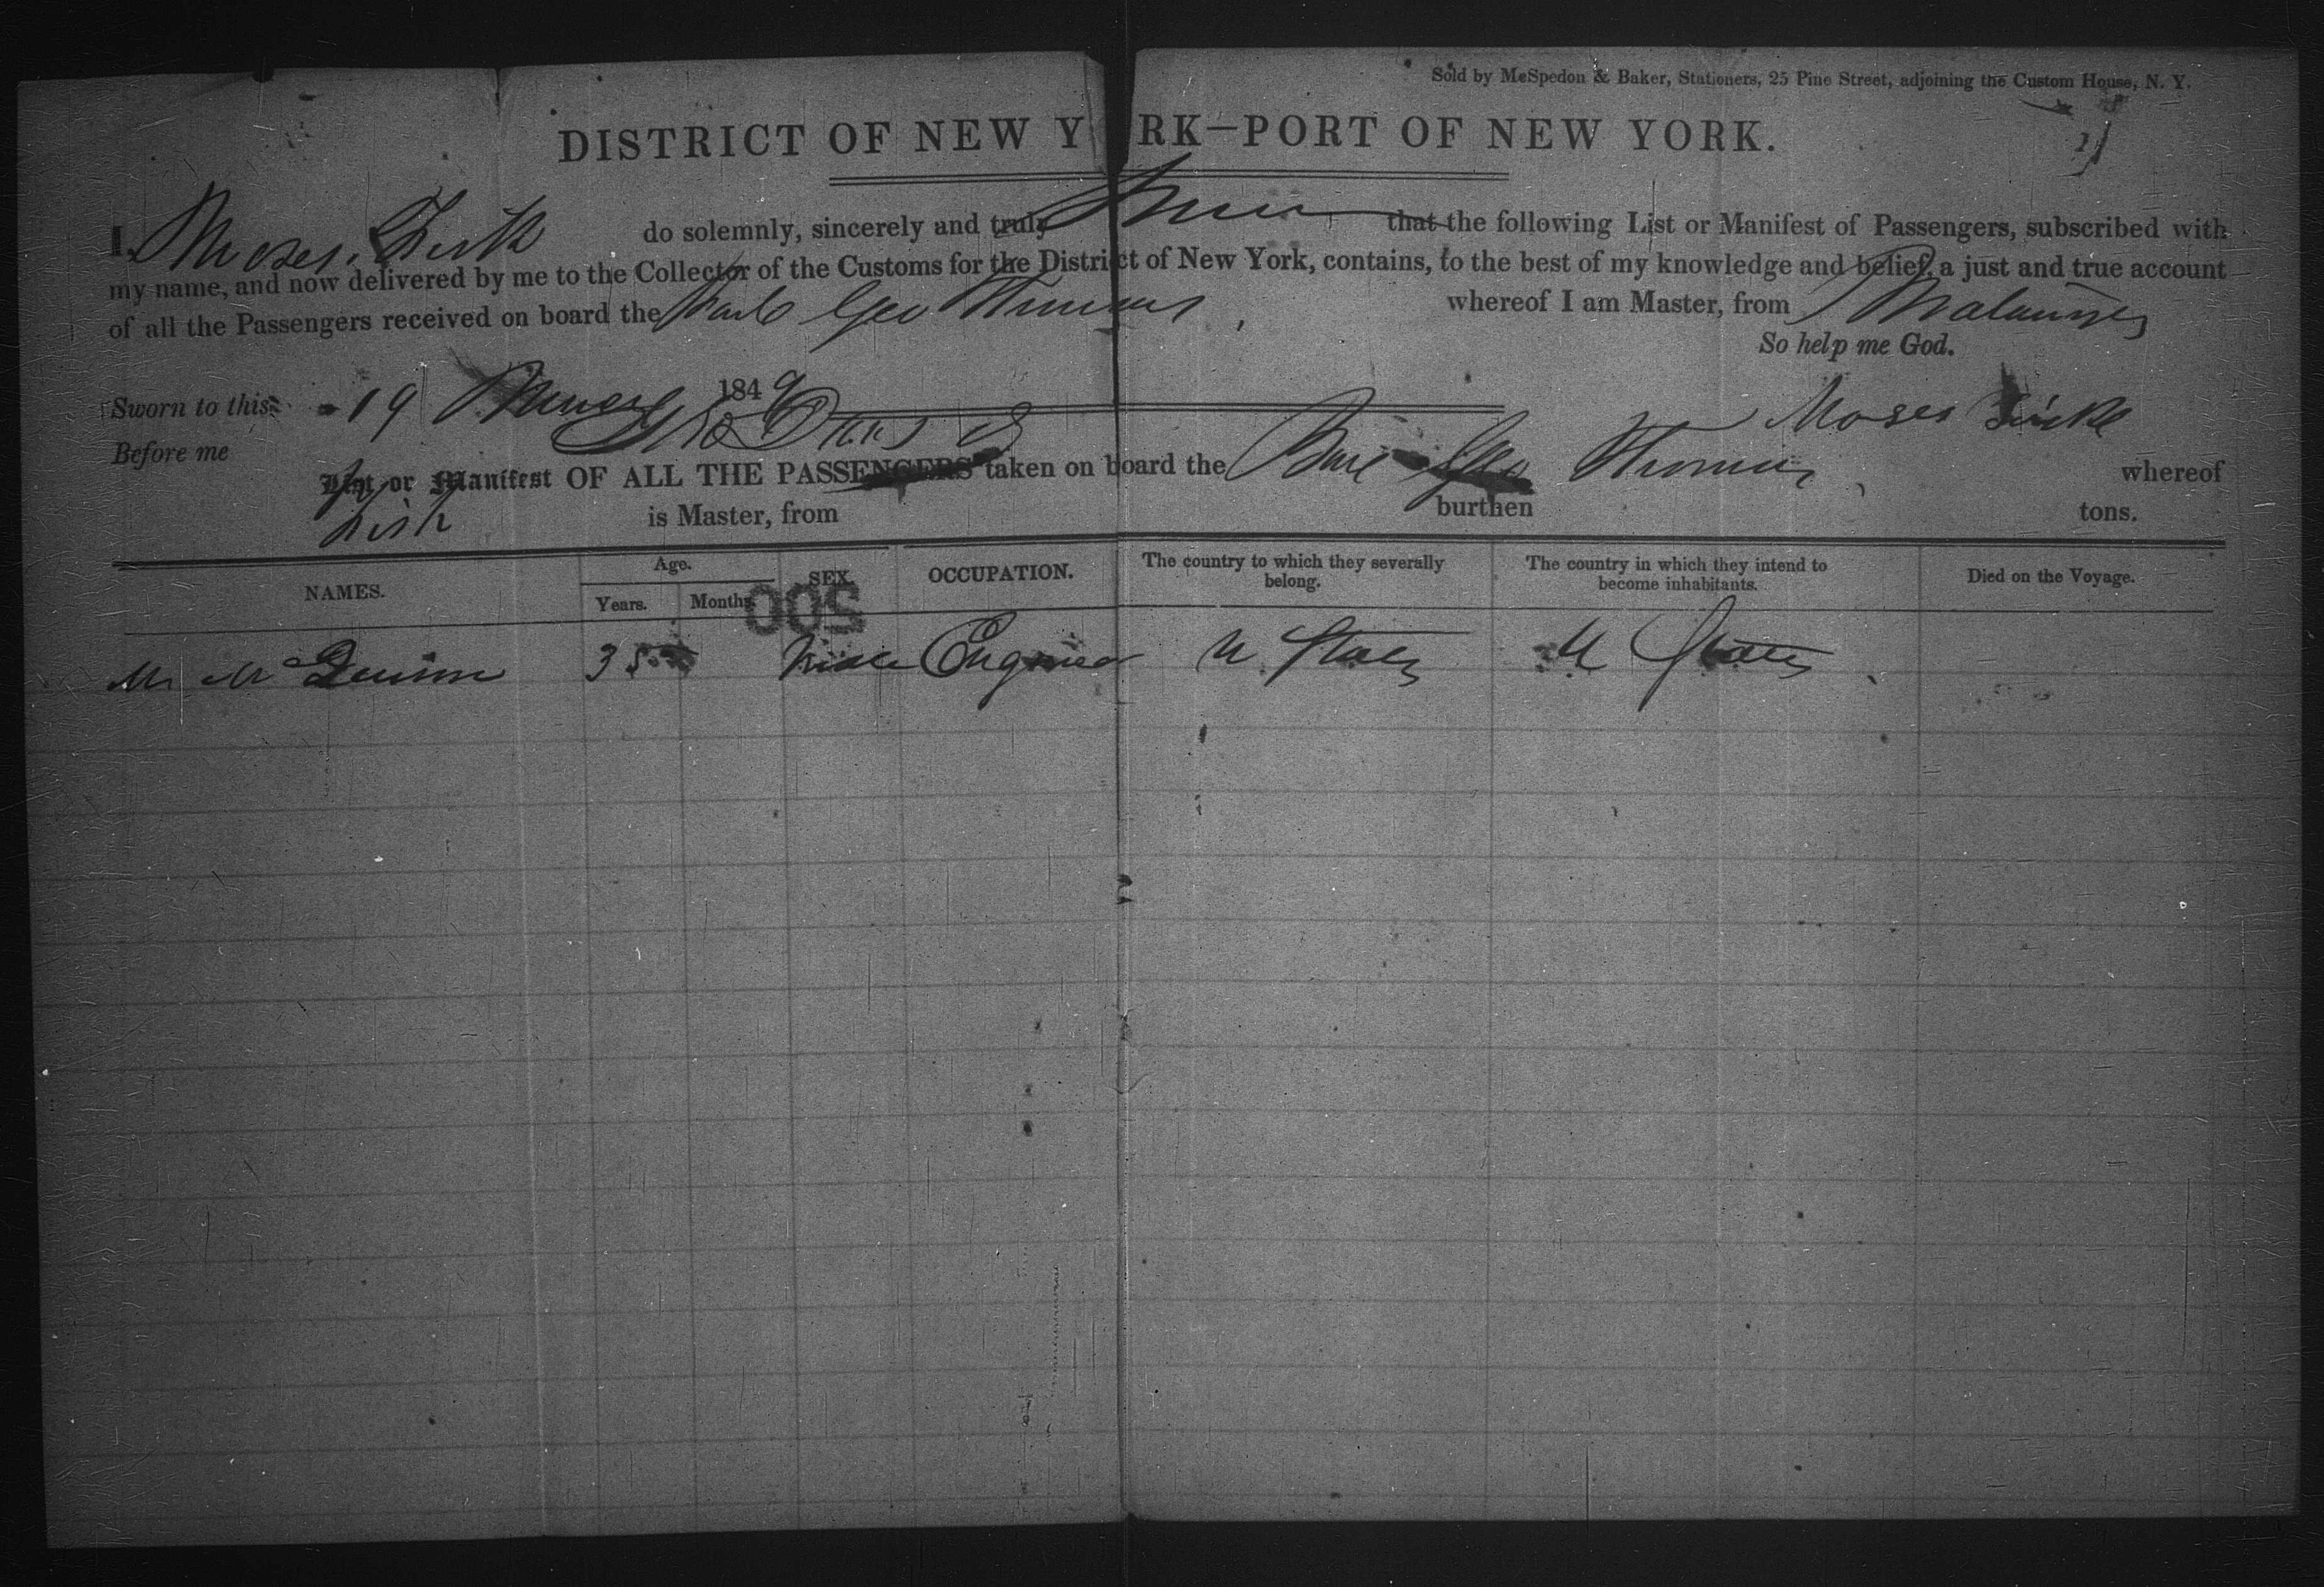 Sold by McSpedon & Baker, Stationers, 25 Pine Street, adjoining the Custom House, N. Y.
DISTRICT OF NEW Y RK—PORT OF NEW YORK.
I, Moses do solemnly, sincerely and truly that the following List or Manifest of Passengers, subscribed with
my name, and now delivered by me to the Collector of the Customs for the District of New York, contains, to the best of my knowledge and belief, a just and true account
of all the Passengers received on board the Bark Geo Thomas, whereof I am Master, from Matanzas
So help me God.
Sworn to this 19 1849
Moses
Before me
List or Manifest OF ALL THE PASSENGERS taken on board the Bark Geo Thomas, whereof
is Master, from burthen tons.
NAMES. Age. Years. Months. SEX. OCCUPATION. The country to which they severally belong. The country in which they intend to become inhabitants. Died on the Voyage.
500
Mr 35 Male Engineer U States U States